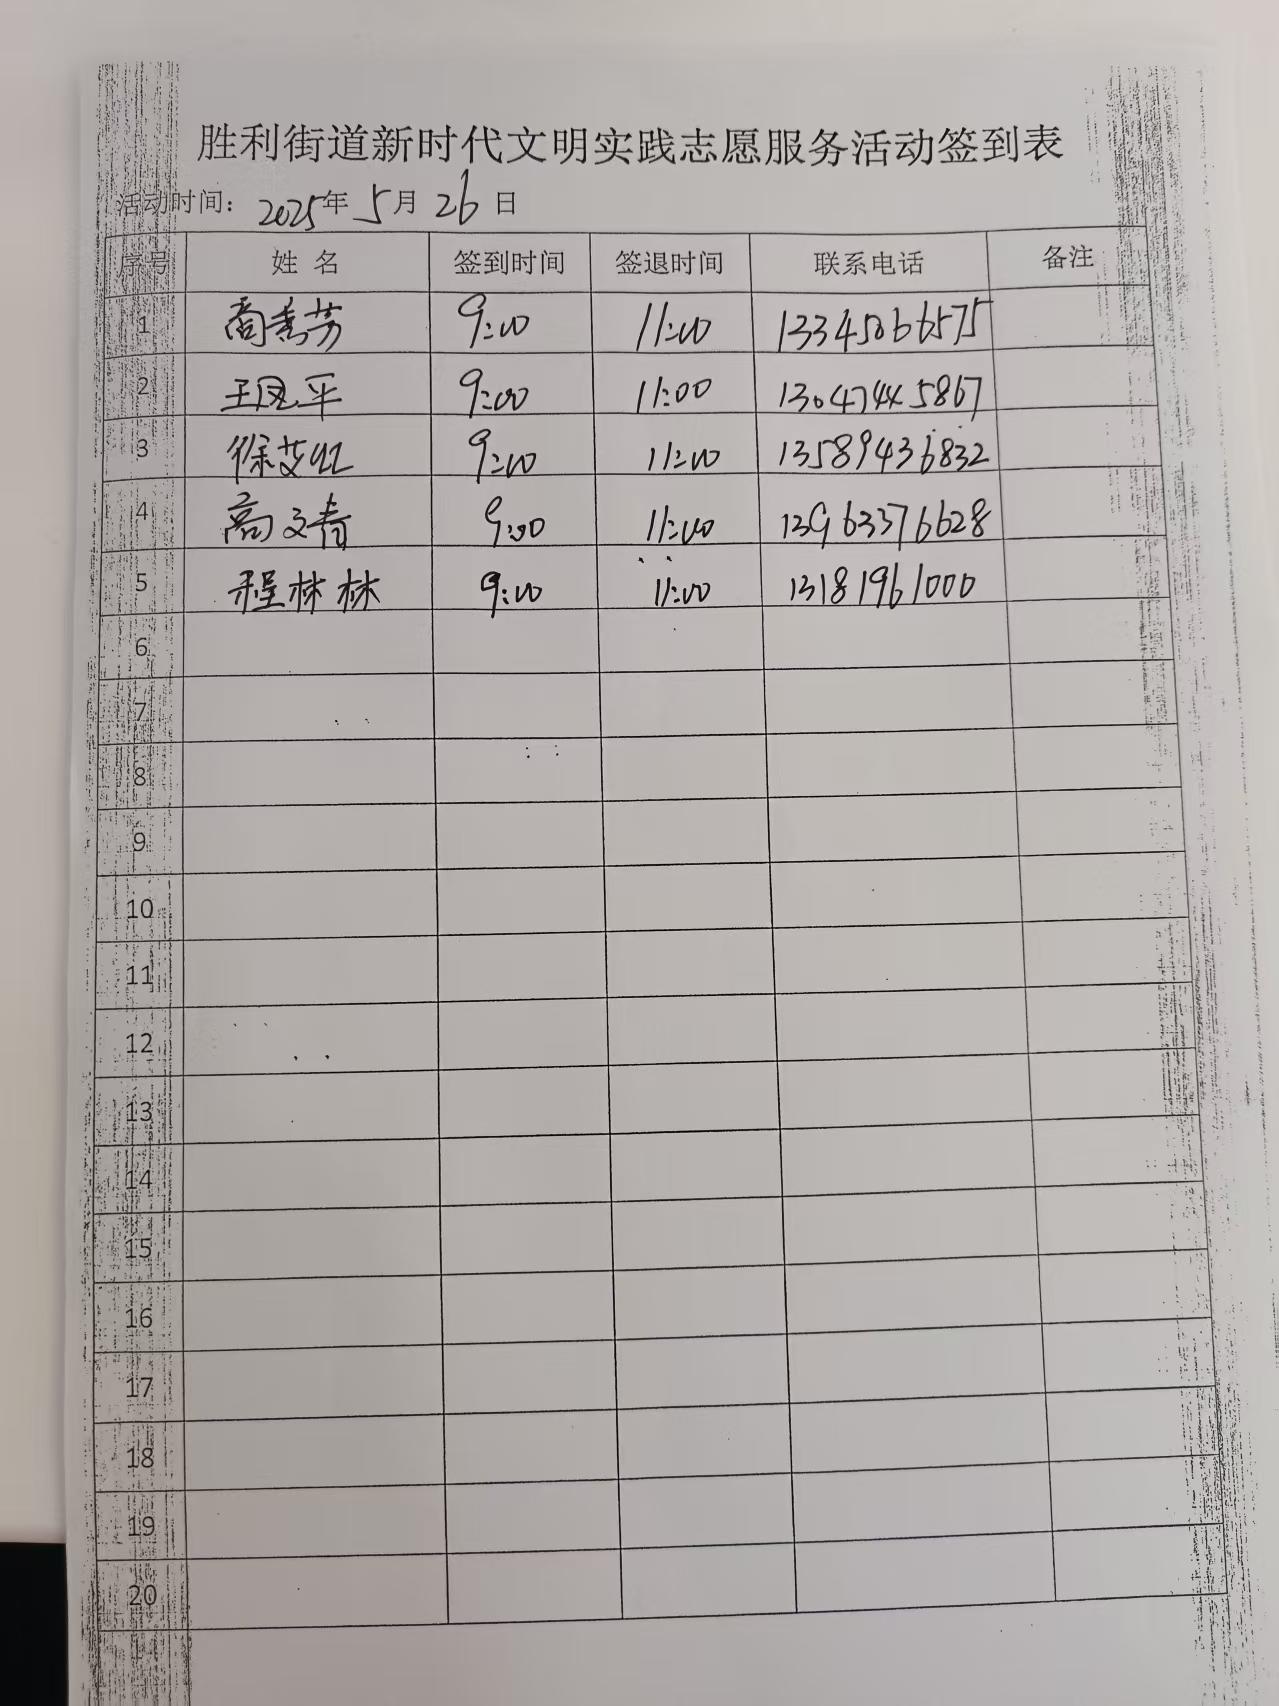 胜利街道新时代文明实践志愿服务活动签到表
活动时间: 2025年 5月 26日
序号 姓 名 签到时间 签退时间 联系电话 备注
1 商秀芳 9:00 11:00 13345066575
2 王凤平 9:00 11:00 13047445867
3 徐艾红 9:00 11:00 13589436832
4 高文青 9:00 11:00 13963376628
5 程林林 9:00 11:00 13181961000
6
7
8
9
10
11
12
13
14
15
16
17
18
19
20